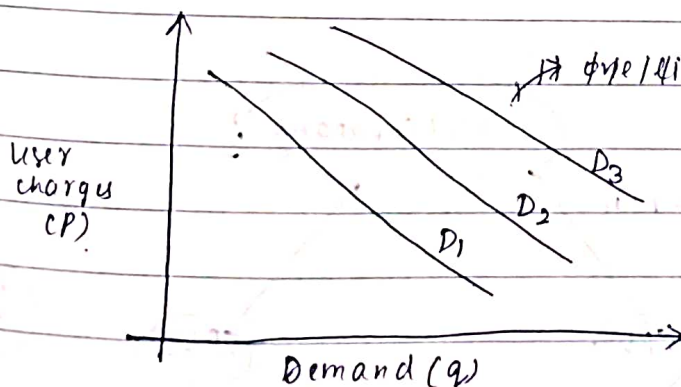 User
charges
(P)
D1
D2
D3
Demand (q)